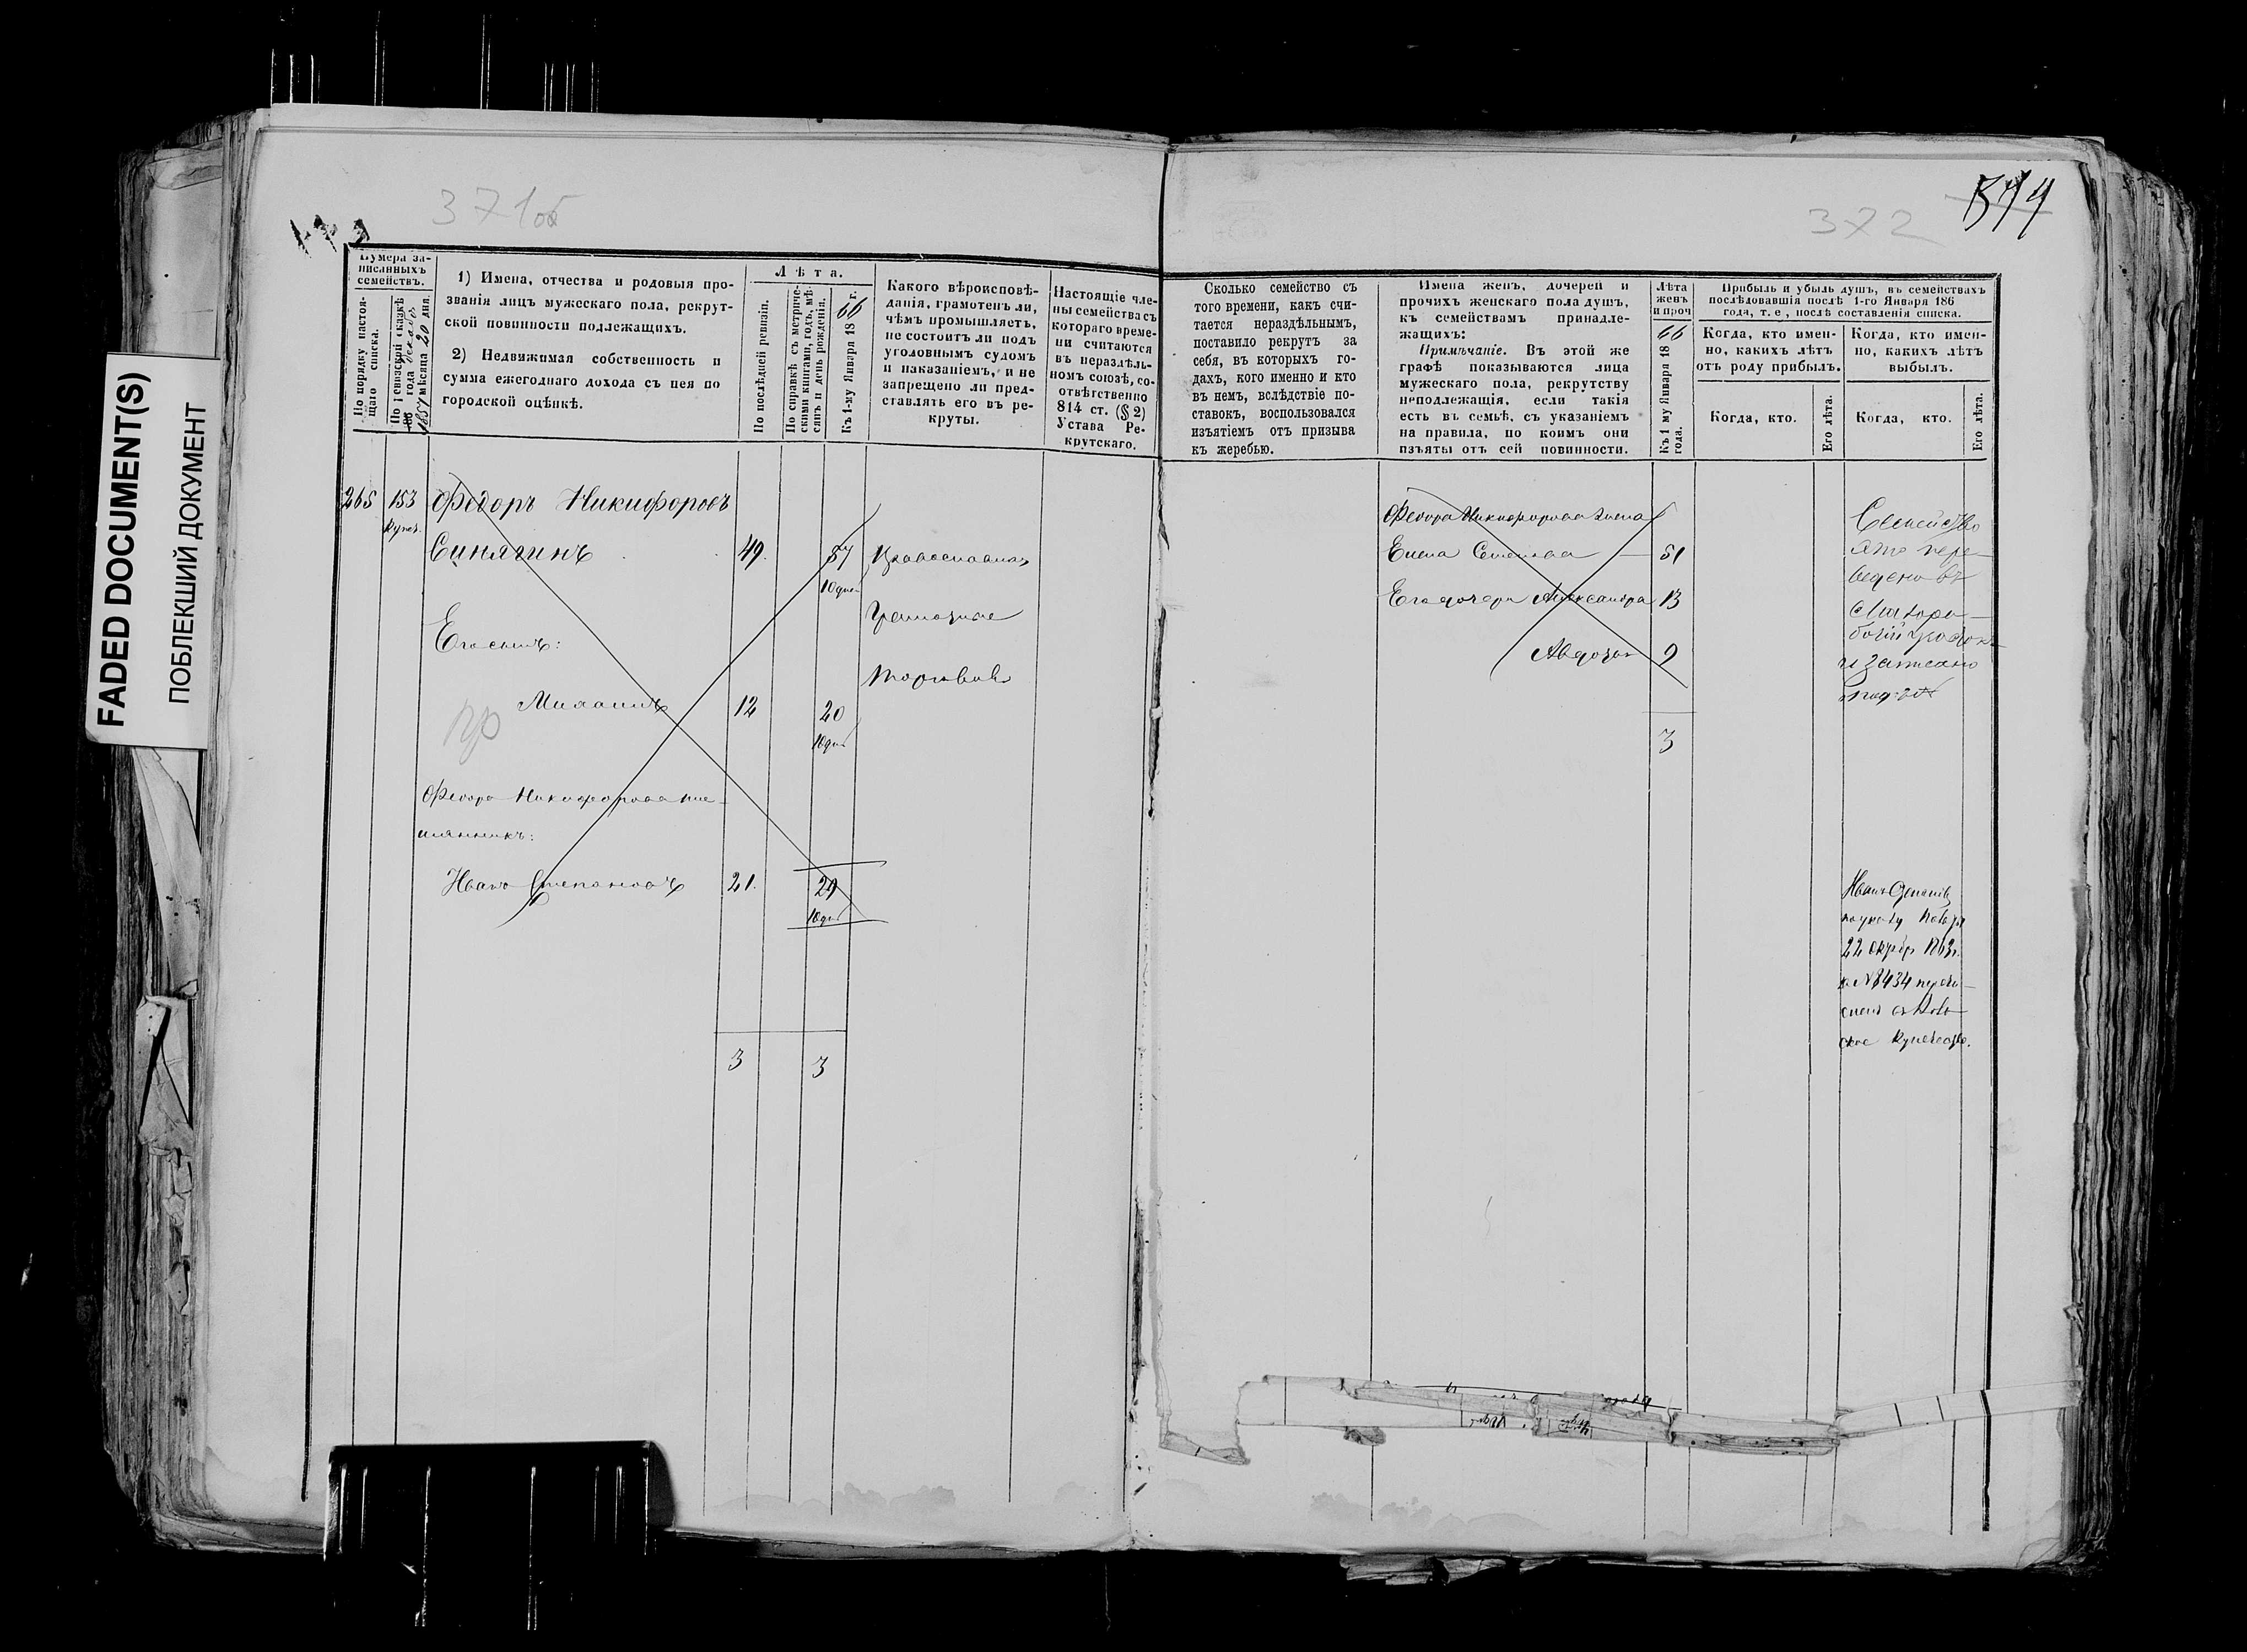 FADED DOCUMENT(S)
ПОБЛЕКШИЙ ДОКУМЕНТ
371об
Нумера за-
писанныхъ
семействъ.
По порядку настоя-
щаго списка.
По ревизской сказкѣ
года декабр.
1857 мѣсяца 20 дня.
1) Имена, отчества и родовыя про-
званія лицъ мужескаго пола, рекрут-
ской повинности подлежащихъ.
2) Недвижимая собственность и
сумма ежегоднаго дохода съ нея по
городской оцѣнкѣ.
Лѣта.
По послѣдней ревизіи.
По справкѣ съ метриче-
скими книгами, годъ, мѣ-
сяцъ и день рожденія.
Къ 1-му Января 1866 г.
Какого вѣроисповѣ-
данія, грамотенъ ли,
чѣмъ промышляетъ,
не состоитъ ли подъ
уголовнымъ судомъ
и наказаніемъ, и не
запрещено ли пред-
ставлять его въ ре-
круты.
Настоящіе чле-
ны семейства съ
котораго време-
ни считаются
въ нераздѣль-
номъ союзѣ, со-
отвѣтственно
814 ст. (§ 2)
Устава Ре-
крутскаго.
265 153 Федоръ Никифоровъ
купеч.
Синягинъ 49. 57 Православн.
10 дне.
Грамотные
Его сынъ:
Торговля
Михаилъ 12 20
пр
10 дне
Федора Никифорова пле-
мянникъ:
Иванъ Степановъ 21. 29
10 дне
3 3
372
Сколько семейство съ
того времени, какъ счи-
тается нераздѣльнымъ,
поставило рекрутъ за
себя, въ которыхъ го-
дахъ, кого именно и кто
въ немъ, вслѣдствіе по-
ставокъ, воспользовался
изъятіемъ отъ призыва
къ жеребью.
Имена женъ, дочерей и
прочихъ женскаго пола душъ,
къ семействамъ принадле-
жащихъ:
Примѣчаніе. Въ этой же
графѣ показываются лица
мужескаго пола, рекрутству
неподлежащія, если такія
есть въ семьѣ, съ указаніемъ
на правила, по коимъ они
изъяты отъ сей повинности.
Лѣта
женъ
и проч
Къ 1 му Января 1866
года.
Прибыль и убыль душъ, въ семействахъ
послѣдовавшія послѣ 1-го Января 186
года, т. е., послѣ составленія списка.
Когда, кто имен-
но, какихъ лѣтъ
отъ роду прибылъ.
Когда, кто.
Его лѣта.
Когда, кто имен-
но, какихъ лѣтъ
выбылъ.
Когда, кто.
Его лѣта.
Федора Никифорова жена
Елена Семенова 51
Его дочери Александра 13
Авдотья 9
3
Семейство
это пере-
ведено въ
и записано
Иванъ Степановъ
по указу
22 октябр 1863 г.
за № 8434 перечи-
сленъ въ
ское купечество.